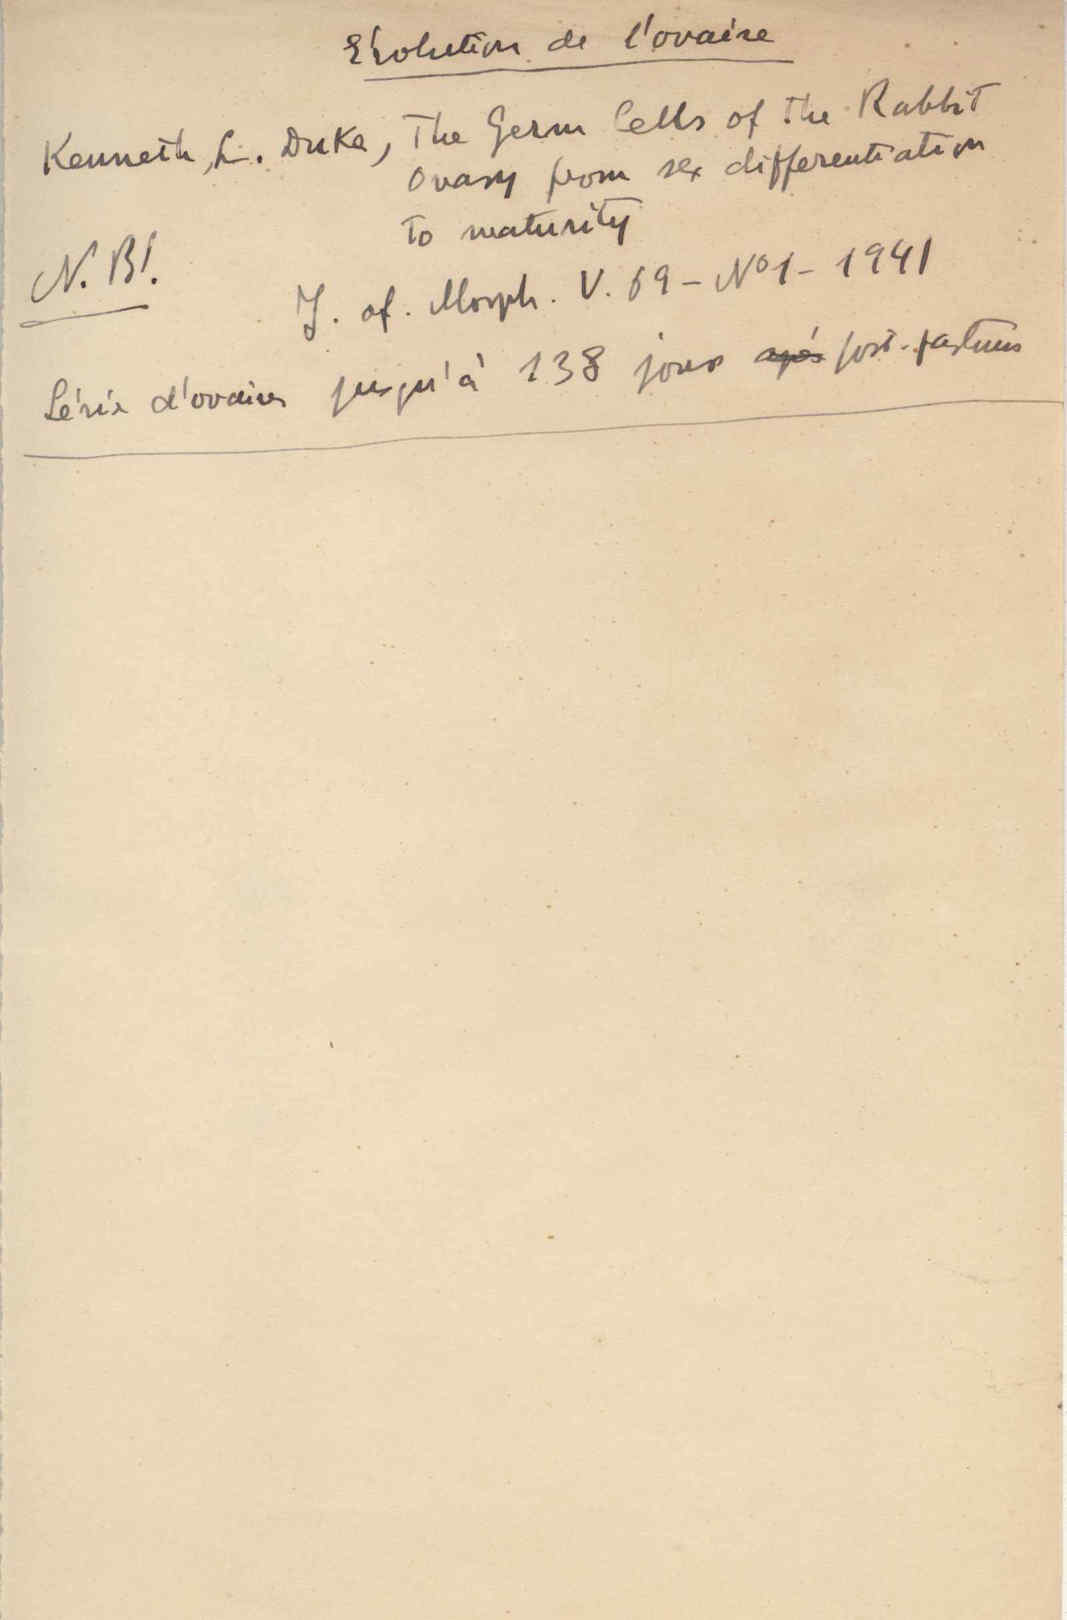 Évolution de l'ovaire
Kenneth, L. Duke, The Germ Cells of the Rabbit
Ovary from sex differentiation
to maturity
N. B!.
J. of. Morph. V. 69 - No 1 - 1941
Série d'ovaires jusqu'à 138 jours après post-partum